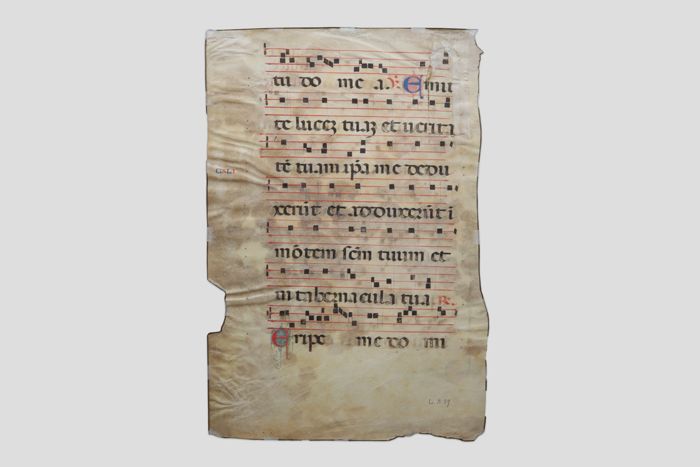 tu do me a. ℣. Emit
te lucez tuaz et uerita
tē tuam ipa me dedu
xerūt et adduxerūt i
mōtem scm̄ tuum et
in tabernacula tua ℞.
Eripe me do mi